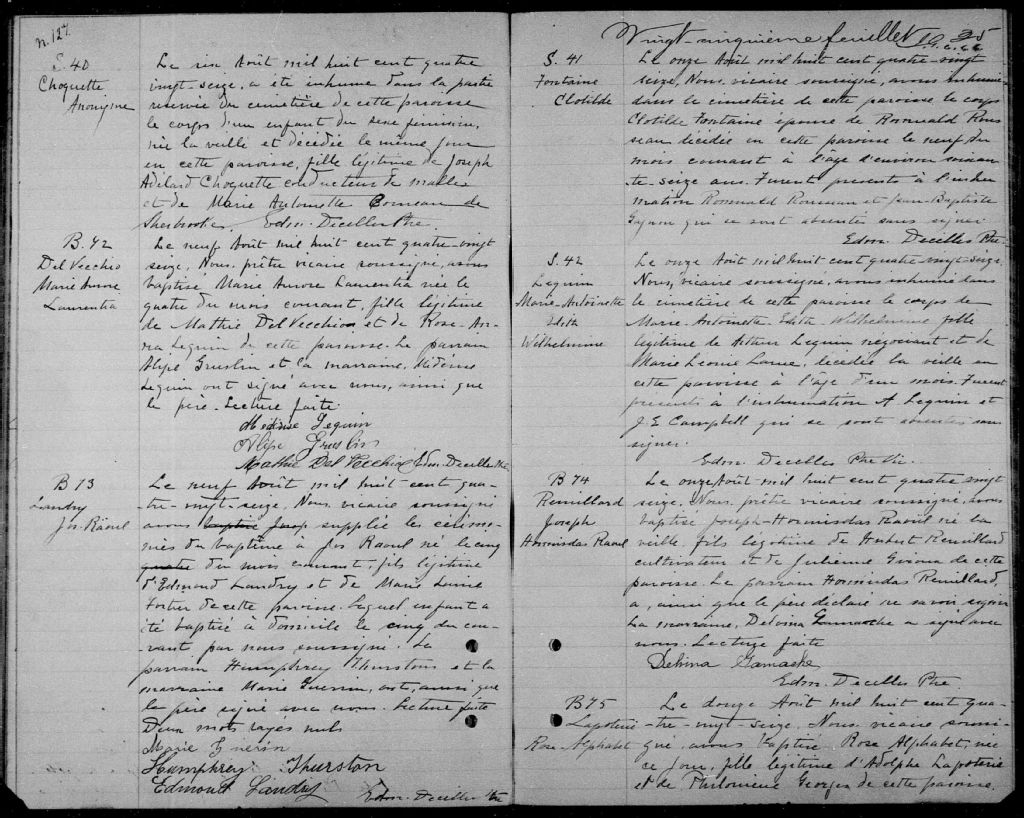 n. 127.
S. 40
Choquette
Anonyme
Le six Août mil huit cent quatre
vingt-seize, a été inhumé dans la partie
réservée du cimetière de cette paroisse
le corps d'un enfant du sexe féminin,
née la veille et décédée le même jour
en cette paroisse, fille légitime de Joseph
Adélard Choquette conducteur de malles
et de Marie Antoinette Comeau de
Sherbrooke. Edm. Decelles Ptre
B. 72
Del Vecchio
Marie Aurore
Laurentia
Le neuf Août mil huit cent quatre-vingt
seize, Nous, prêtre vicaire soussigné, avons
baptisé Marie Aurore Laurentia née le
quatre du mois courant, fille légitime
de Matthie Del Vecchio et de Rose-An-
na Seguin de cette paroisse. Le parrain
Alipe Gruslin et la marraine,
Seguin ont signé avec nous, ainsi que
le père. Lecture faite
Seguin
Alipe Gruslin
Mathie Del Vecchio Edm. Decelles Ptre
B 73
Landry
Jos. Raoul
Le neuf Août mil huit-cent qua-
tre-vingt-seize, Nous, vicaire soussigné
avons baptisé Josep supplié les cérémo-
nies du baptême à Jos Raoul né le cinq
quatre du mois courant, fils légitime
d'Edmond Landry et de Marie Louise
Fortier de cette paroisse. Lequel enfant a
été baptisé à domicile le cinq du cou-
rant par nous soussigné. Le
parrain Humphrey Thurston et la
marraine Marie Guérin, ont, ainsi que
le père signé avec nous. Lecture faite
Deux mots rayés nuls
Marie Guérin
Humphrey Thurston
Edmond Landry Edm. Decelles Ptre
Vingt-cinquième feuillet 25
S. 41
Fontaine
Clotilde
Le onze Août mil huit cent quatre-vingt
seize, Nous, vicaire soussigné, avons inhumé
dans le cimetière de cette paroisse, le corps
Clotilde Fontaine épouse de Romuald Rous
seau décédée en cette paroisse le neuf du
mois courant à l'âge d'environ soixan
-te-seize ans. Furent présents à l'inhu
mation Romuald Rousseau et Jean-Baptiste
Gagnon qui se sont absentés sans signer
Edm. Decelles Ptre
S. 42
Seguin
Marie-Antoinette
Edith
Wilhelmine
Le onze Août mil huit cent quatre vingt-seize,
Nous, vicaire soussigné, avons inhumé dans
le cimetière de cette paroisse le corps de
Marie-Antoinette-Edith-Wilhelmine fille
légitime de Arthur Seguin négociant et de
Marie Léonie Larue, décédée la veille en
cette paroisse à l'âge d'un mois. Furent
présents à l'inhumation A Seguin et
J. E Campbell qui se sont absentés sans
signer.
Edm. Decelles Ptre Vic.
B 74
Remillard
Joseph
Hormisdas Raoul
Le onze Août mil huit cent quatre vingt
seize, Nous, prêtre vicaire soussigné, avons
baptisé Joseph-Hormisdas Raoul né la
veille, fils légitime de Hubert Remillard
cultivateur et de Julienne de cette
paroisse. Le parrain Hormisdas Remillard,
a, ainsi que le père déclaré ne savoir signer
La marraine, Delvina Gamache a signé avec
nous. Lecture faite
Delvina Gamache
Edm. Decelles Ptre
B 75
Lapoterie
Rose Alphabet
Le douze Août mil huit cent qua-
-tre-vingt-seize, Nous, vicaire soussi-
gné, avons baptisé Rose Alphabet, née
ce jour, fille légitime d'Adolphe Lapoterie
et de Philomène Georges de cette paroisse.